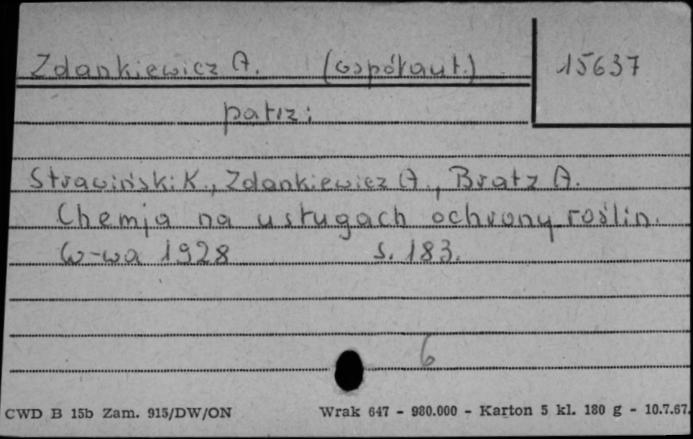 Zdankiewicz A. (współaut.) 15637
patrz:
Strawiński K., Zdankiewicz A., Bratz A.
Chemja na usługach ochrony roślin.
W-wa 1928 s. 183.
6
CWD B 15b Zam. 915/DW/ON Wrak 647 - 980.000 - Karton 5 kl. 180 g - 10.7.67.